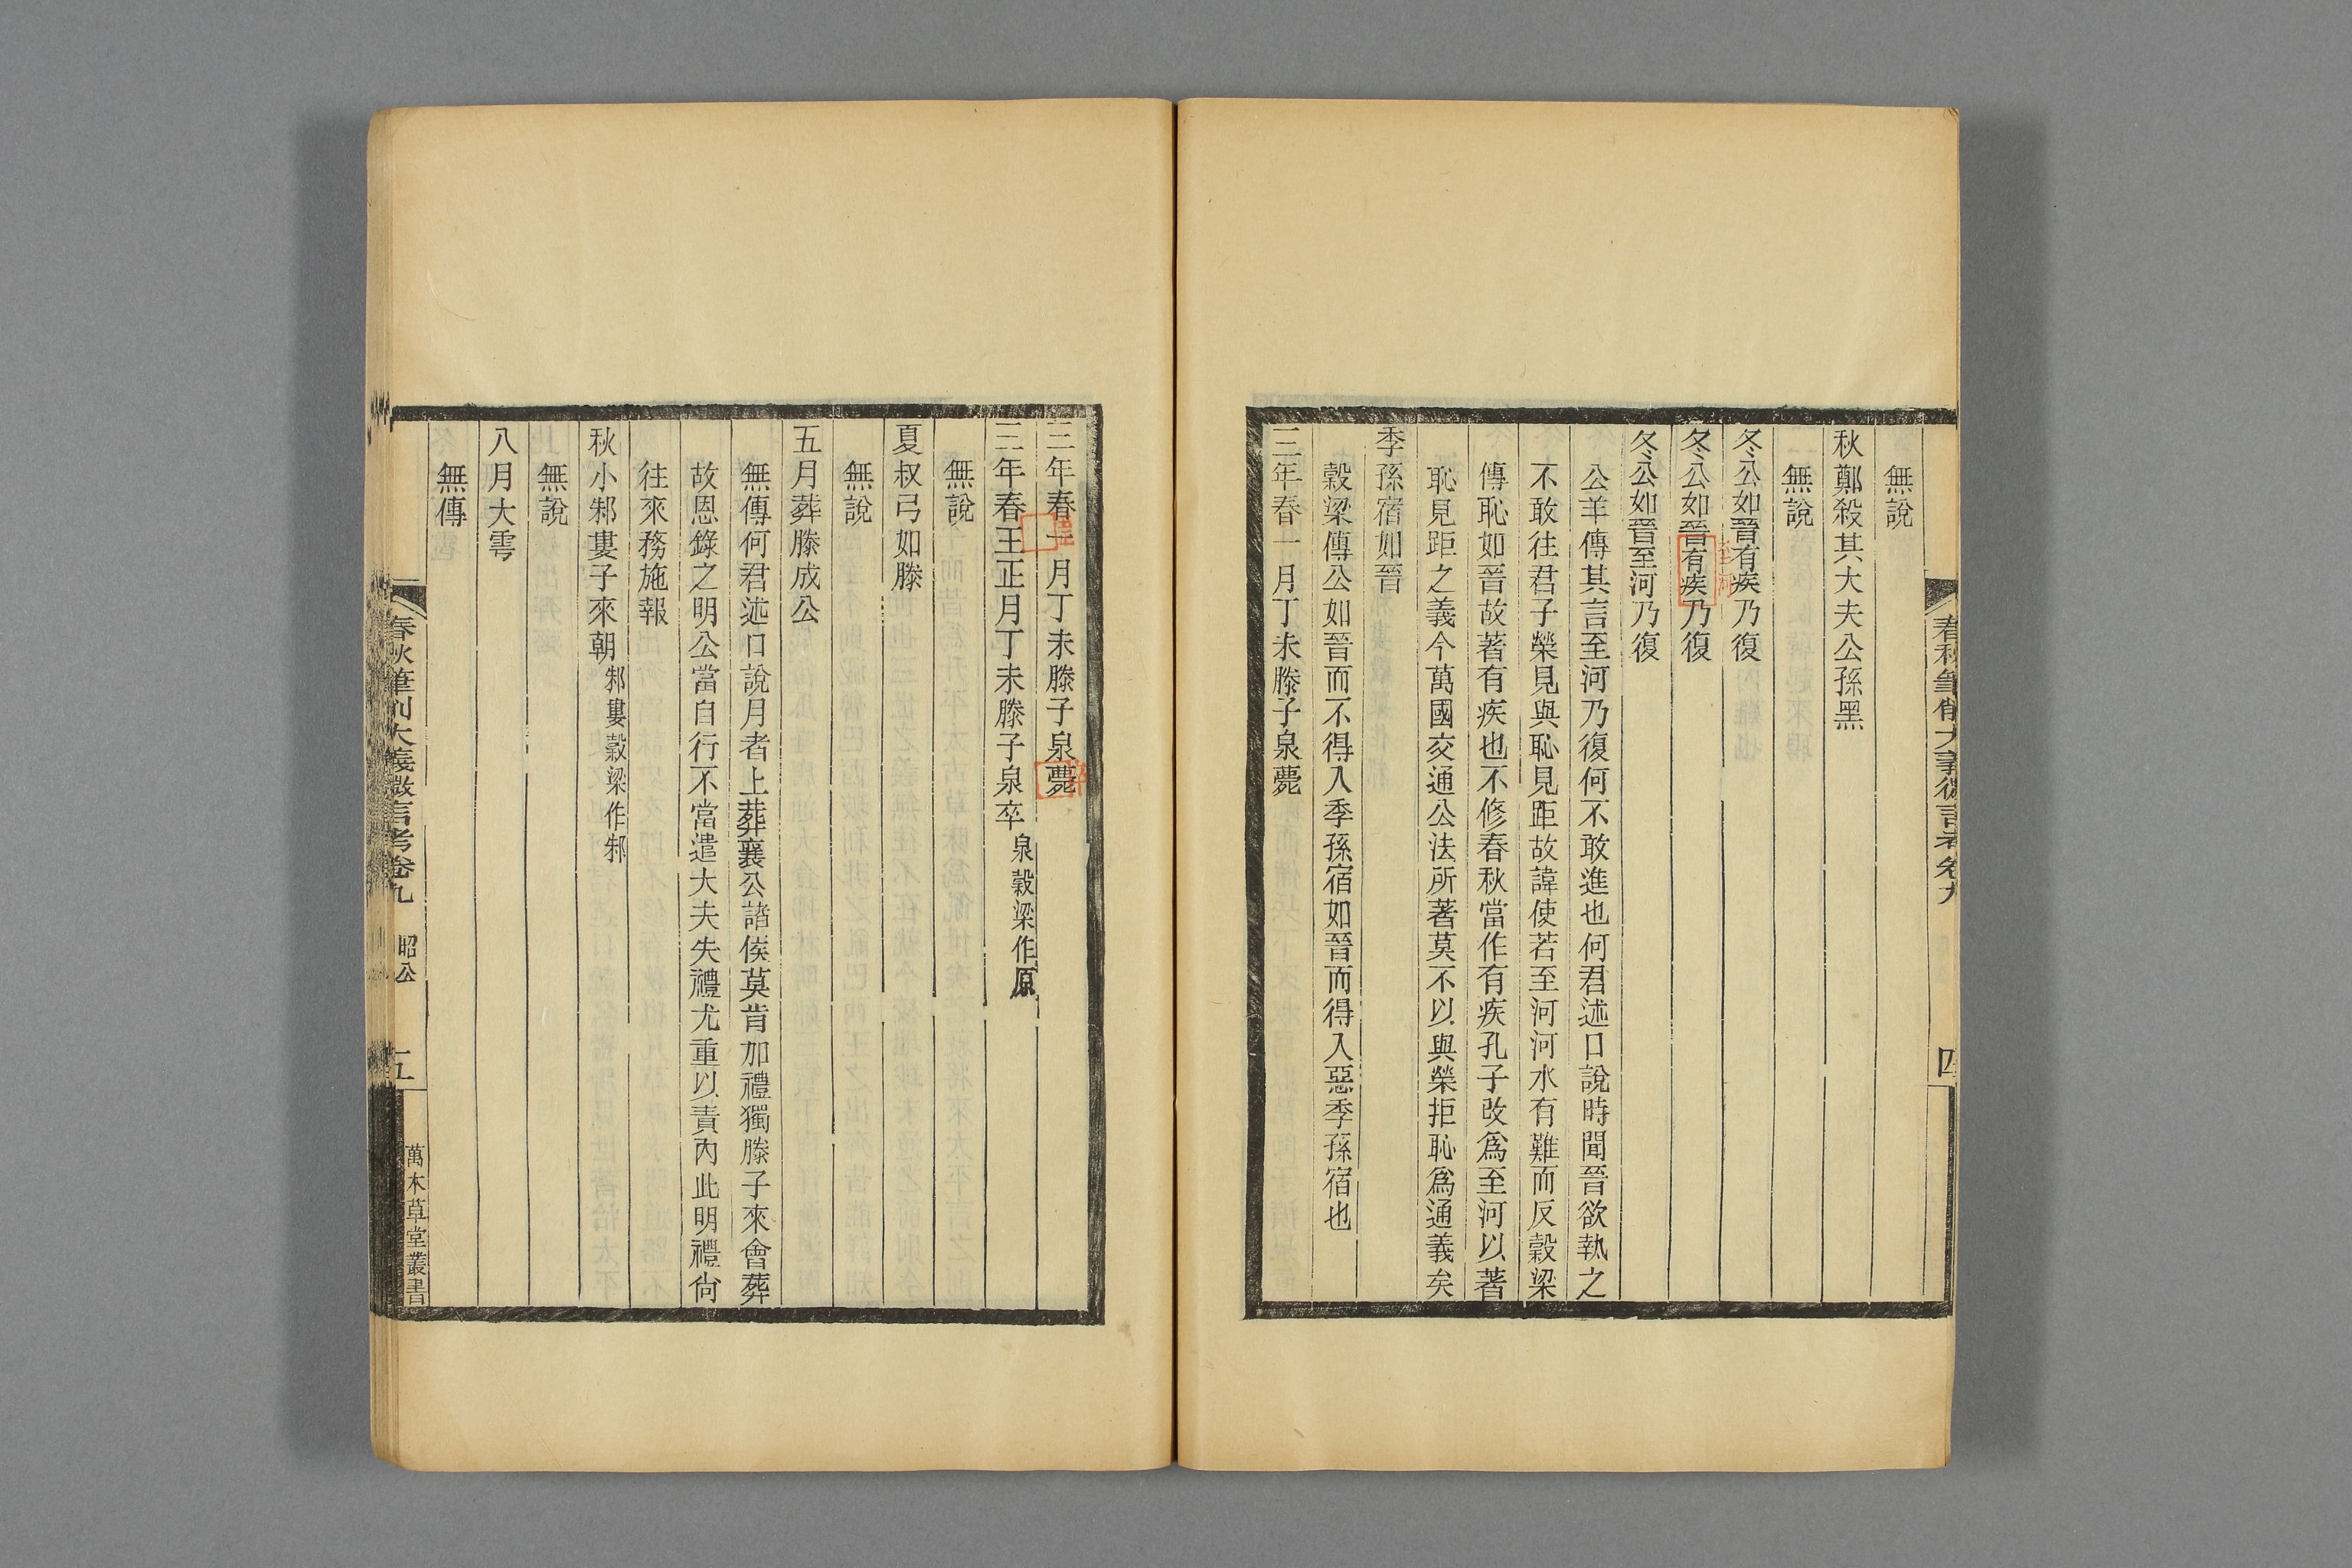 無說
秋鄭殺其大夫公孫黑
無說
冬公如晉有疾乃復
至河
冬公如晉有疾乃復
冬公如晉至河乃復
公羊傳其言至河乃復何不敢進也何君述口說時聞晉欲執之
不敢往君子榮見與恥見距故諱使若至河河水有難而反穀梁
傳恥如晉故著有疾也不修春秋當作有疾孔子改爲至河以著
恥見距之義今萬國交通公法所著莫不以與榮拒恥爲通義矣
季孫宿如晉
穀梁傳公如晉而不得入季孫宿如晉而得入惡季孫宿也
三年春一月丁未滕子泉薨
春秋筆削大義微言考卷九
四
三年春一月丁未滕子泉薨
三年春王正月丁未滕子泉卒泉穀梁作原
無說
夏叔弓如滕
無說
五月葬滕成公
無傳何君述口說月者上葬襄公諸侯莫肯加禮獨滕子來會葬
故恩錄之明公當自行不當遣大夫失禮尤重以責內此明禮尙
往來務施報
秋小邾婁子來朝邾婁穀梁作邾
無說
八月大雩
無傳
春秋筆削大義微言考卷九 昭公 五 萬木草堂叢書